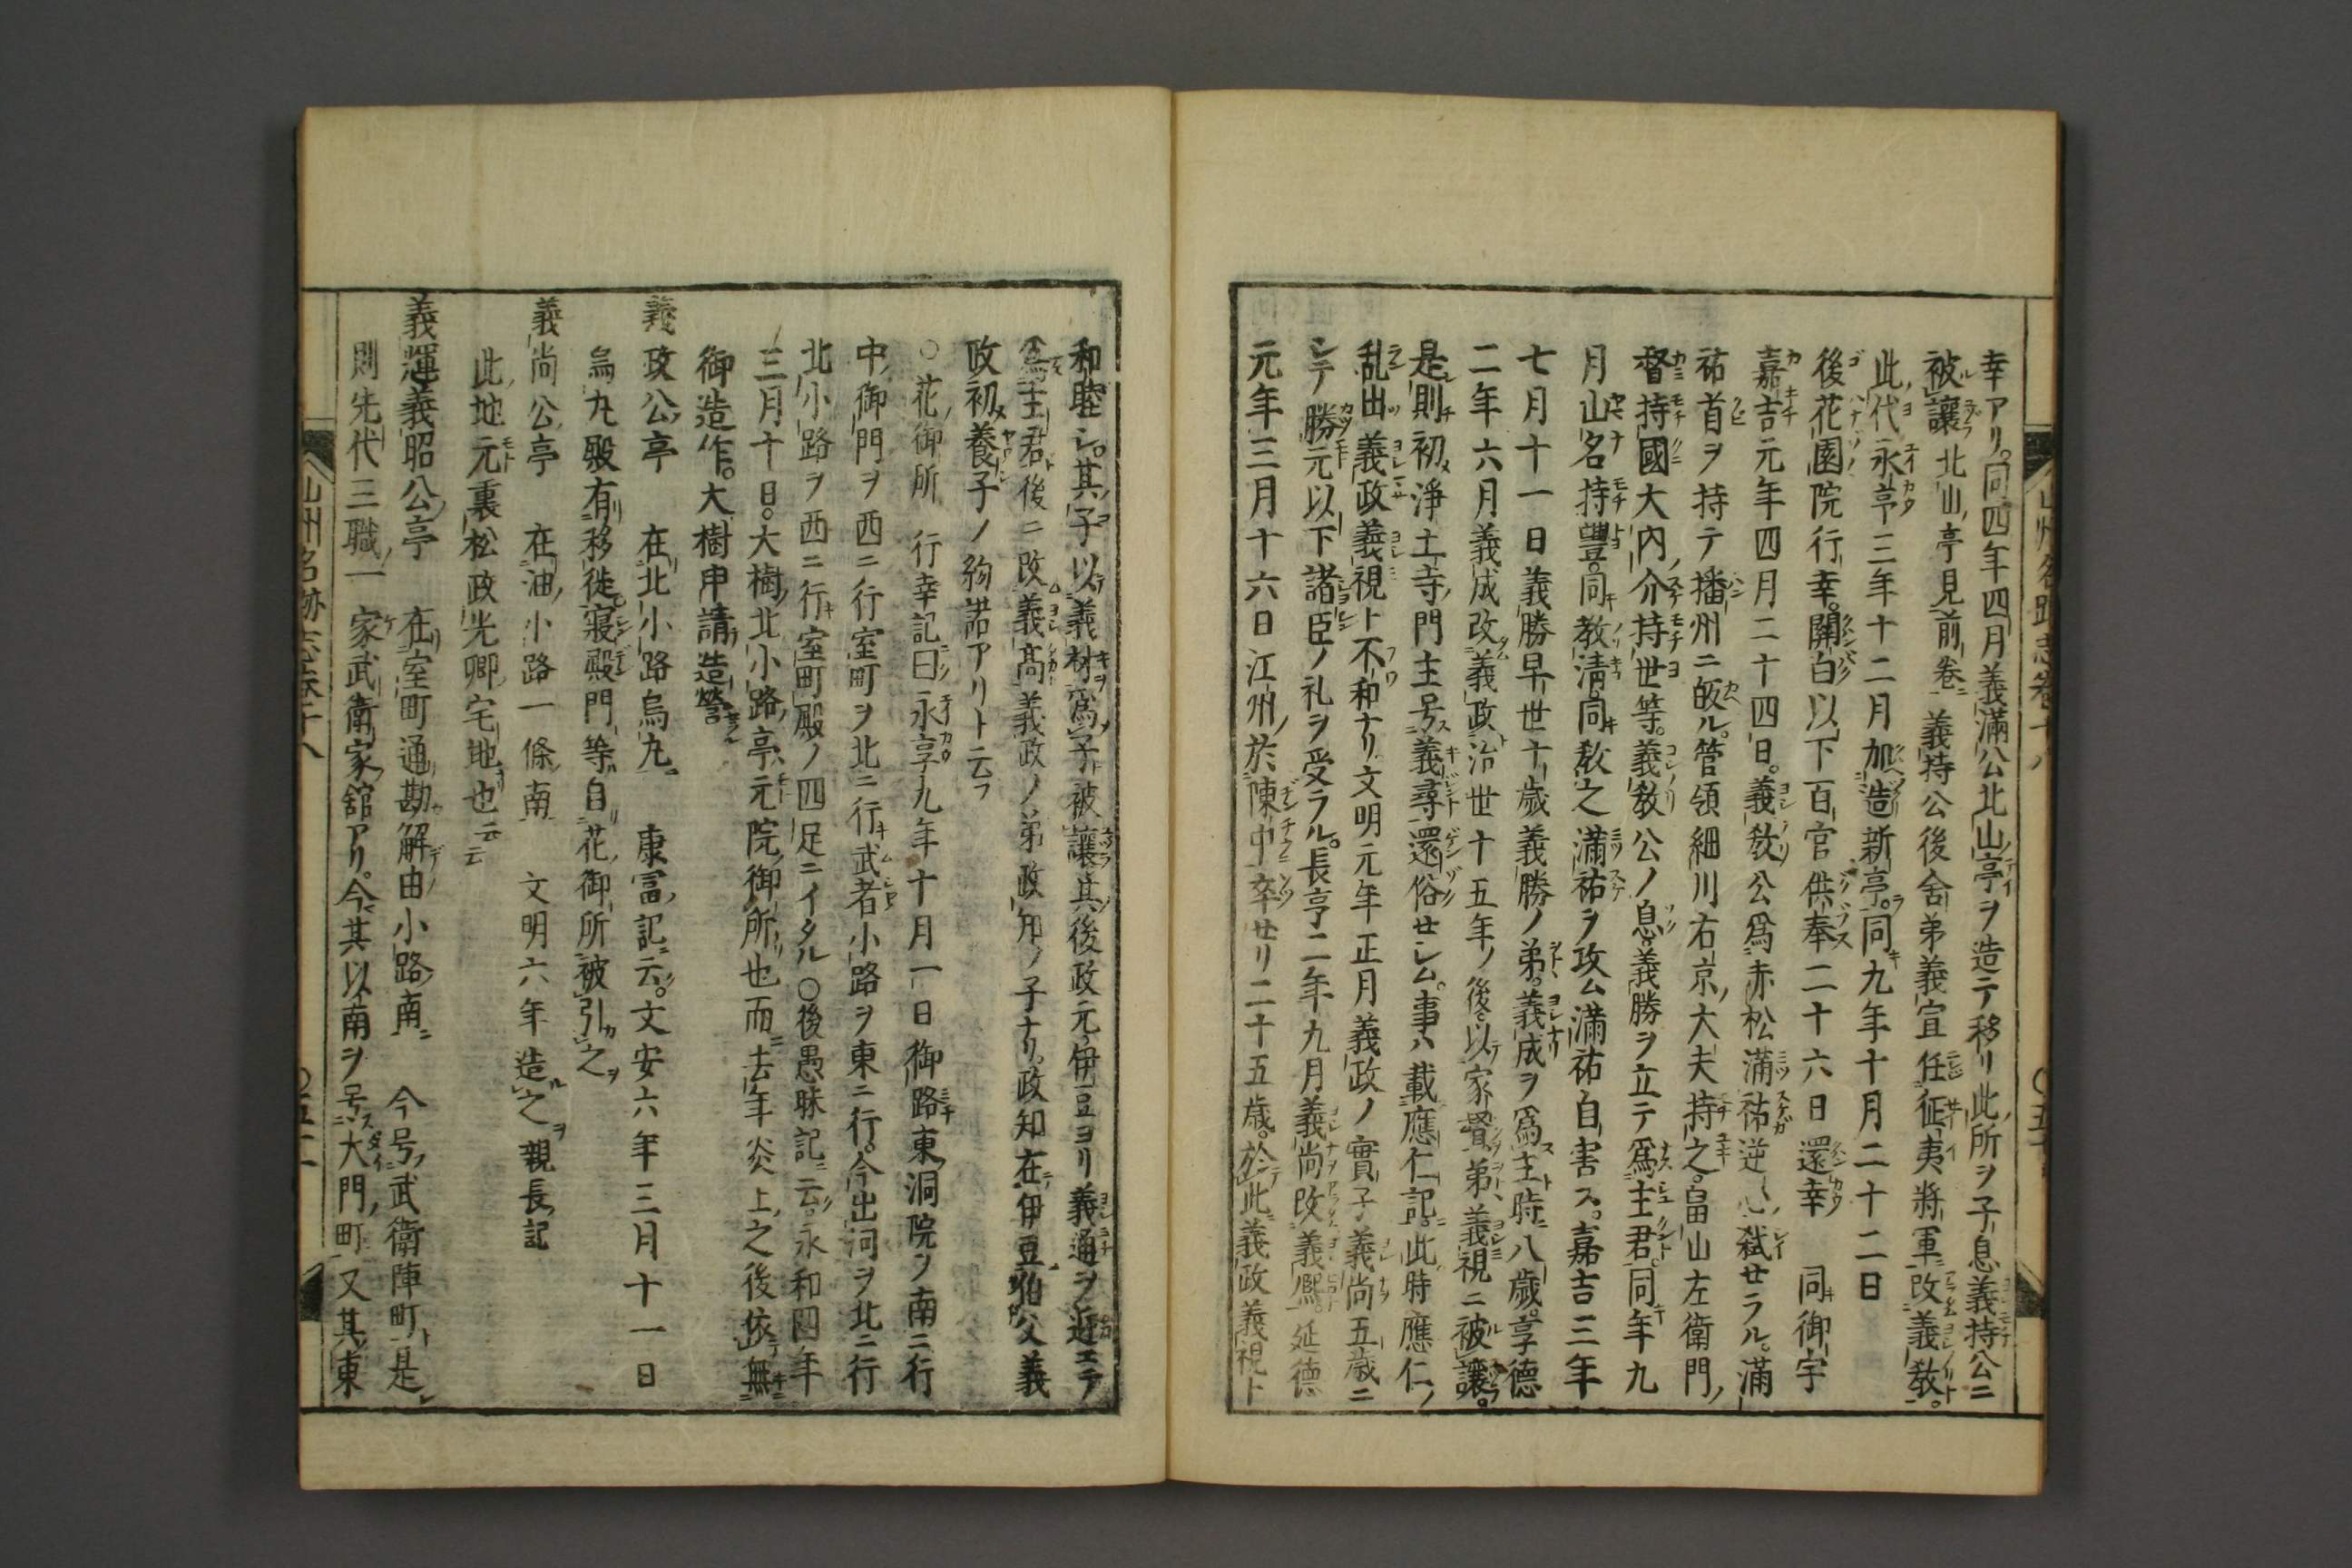 幸アリ。同四年四月義滿公北山亭ヲ造テ移リ此所ヲ子息義持公ニ
被讓 北山亭見前卷 義持公後舍弟義宣任征夷將軍改義教。
此代永享三年十二月加造新亭。同九年十月二十二日
後花園院行幸。關白以下百官供奉二十六日還幸 同御宇
嘉吉元年四月二十四日。義教公爲赤松滿祐逆心弑セラル。滿
祐首ヲ持テ播州ニ皈ル。管領細川右京大夫持之。畠山左衛門
督持國大内介持世等。義教公ノ息義勝ヲ立テ爲主君。同年九
月山名持豐。同教清。同教之滿祐ヲ攻ム滿祐自害ス。嘉吉三年
七月十一日義勝早世十歳義勝ノ弟。義成ヲ爲主時八歳。享德
二年六月義成改義政治世十五年ノ後。以家督弟義視ニ被讓。
是則初淨土寺門主号義尋還俗セシム。事ハ載應仁記。此時應仁ノ
乱出義政義視ト不和ナリ文明元年正月義政ノ實子義尚五歳ニ
シテ勝元以下諸臣ノ礼ヲ受ラル。長享二年九月義尚改義熈。延德
元年三月十六日江州於陳中卒セリ二十五歳。於此義政義視ト
山州名跡志卷十八
和睦シ。其子以義材爲子被讓其後政元伊豆ヨリ義通ヲ迎エテ
爲主君後ニ改義高義政ノ弟政知ノ子ナリ。政知在伊豆伯父義
政初養子ノ約諾アリト云フ
○花御所 行幸記曰永享九年十月一日御路東洞院ヲ南ニ行
中御門ヲ西ニ行室町ヲ北ニ行武者小路ヲ東ニ行。今出河ヲ北ニ行
北小路ヲ西ニ行室町殿ノ四足ニイタル○後愚昧記云。永和四年
三月十日。大樹北小路亭元院御所也而去年炎上之後依無
御造作。大樹申請造營
義政公亭 在北小路烏丸 康冨記云。文安六年三月十一日
烏丸殿有移徙。寢殿門等自花御所被引之
義尚公亭 在油小路一條南 文明六年造之 親長記
此地元裏松政光卿宅地也云云
義輝義昭公亭 在室町通勘解由小路南 今号武衛陣町是
則先代三職一家武衛家舘アリ。今其以南ヲ号大門町又其東
山州名跡志卷十八